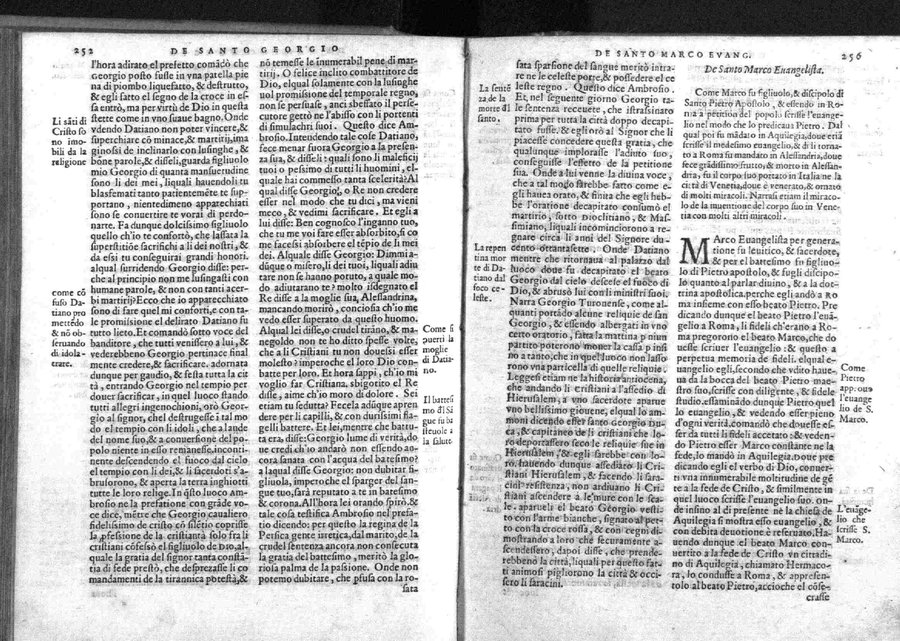 252
DE SANTO GEORGIO
l'hora adirato el prefetto comãdò che
Georgio posto fusse in vna patella pie
na di piombo liquefatto, & destrutto,
& egli fatto el segno de la croce in es-
sa entrò, ma per virtù de Dio in questa
stette come in vno suaue bagno. Onde
vdendo Datiano non poter vincere, &
superchiare cõ minacce, & martirij, ima
ginossi de inclinarlo con lusinghe, &
bone parole, & disseli, guarda figliuolo
mio Georgio di quanta mansuerudine
sono li dei mei, liquali hauendoli tu
blasfemati tanto patientemẽte te sup-
portano, nientedimeno apparechiati
sono se conuertire te vorai di perdo-
narte. Fa dunque dolcissimo figliuolo
quello ch'io te confortò, che lassata la
superstitiõe sacrifichi a li dei nostri, &
da essi tu conseguirai grandi honori.
alqual surridendo Georgio disse: per-
che al principio non me lusingasti con
humane parole, & non con tanti acer-
bi martirij? Ecco che io apparechiato
sono di fare quel mi conforti, e con ta-
le promissione el delirato Datiano fu
tutto lieto. Et comandò sotto voce del
banditore, che tutti venissero a lui, &
vederebbeno Georgio pertinace final
mente credere, & sacrificare. adornata
dunque per gaudio, & festa tutta la cit
tà, entrando Georgio nel tempio per
douer sacrificar, in quel luoco stando
tutti allegri ingenochioni, orò Geor-
gio al signor, chel destrugesse i tal mo
do el tempio con li idoli, che a laude
del nome suo, & a conuersione del po-
polo niente in esso remanesse, inconti-
nente descendendo el fuoco dal cielo
el tempio con li dei, & li sacerdoti s'a-
brusorono, & aperta la terra inghiotti
tutte le loro reliqe. In q̃sto luoco am-
brosio ne la prefatione con grãde vo-
ce dice, mẽtre che Georgio caualiero
fidelissimo de cristo cõ silẽtio coprisse
la p̃fessione de la cristianità solo fra li
cristiani cõfessò el figliuolo de DIO, al-
quale la gratia del signor tanta constã-
tia di fede prestò, che despresasse li co
mandamenti de la tirannica potestà, &
Li sãti di
Cristo so
no imo-
bili da la
religione
come cõ
fuso Da-
tiano pro
mettẽdo
& nõ ob-
seruando
di idola-
trare.
nõ temesse le inumerabil pene di mar-
tirij. O felice inclito combattitore de
Dio, elqual solamente con la lusinghe
uol promissione del temporale regno,
non se persuase, anci sbessato il perse-
cutore gettò ne l'abisso con li portenti
di simulachri suoi. Questo dice Am-
brosio. Intendendo tale cose Datiano,
fece menar fuora Georgio a la presen-
za sua, & disseli: quali sono li maleficij
tuoi o pessimo di tutti li huomini, el-
quale hai commesso tanta scelerità? Al
qual disse Georgio, o Re non credere
esser nel modo che tu dici, ma vieni
meco, & vedimi sacrificare. Et egli a
lui disse: Ben cognosco l'inganno tuo,
che tu me voi fare esser absorbito, si co
me facessi absorbere el tẽpio de li mei
dei. Alquale disse Georgio: Dimmi a-
dũque o misero, li dei tuoi, liquali adiu
tare non se hanno potuto, a quale mo-
do adiutarano te? molto isdegnato el
Re disse a la moglie sua, Alessandrina,
mancando morirò, conciosia ch'io me
vedo esser superato da questo huomo.
Alqual lei disse, o crudel tirãno, & ma-
negoldo non te ho ditto spesse volte,
che a li Cristiani tu non douesi esser
molesto? imperoche el loro Dio com-
batte per loro. Et hora sappi, ch'io mi
voglio far Cristiana, sbigotito el Re
disse, aime ch'io moro di dolore. Sei
etiam tu sedutta? Fecela adũque apren
dere per li capilli, & con durissimi fla-
gelli battere. Et lei, mentre che battu-
ta era, disse: Georgio lume di verità, do
ue credi ch'io andarò non essendo an-
cora sanata con l'acqua del batesimo?
a laqual disse Georgio: non dubitar fi-
gliuola, impero che el sparger del san-
gue tuo, sarà reputato a te in batesimo
& corona. All'hora lei orando spirò, &
tale cosa testifica Ambrosio nel prefa-
tio dicendo: per questo la regina de la
Persica gente irretica, dal marito, de la
crudel sentenza ancora non consecuta
la gratia del battesimo, meritò la glo-
riosa palma de la passione. Onde non
potemo dubitare, che p̃fusa con la ro-
sata
Come fi
puerti la
moglie
di Datia-
no.
Il battes
mo d'l Si
gue fu bi
sleuole a
la salute
DE SANTO MARCO EVANG.
256
sata sparsione del sangue meritò intra-
re ne le celeste porte, & possedere el ce
leste regno. Questo dice Ambrosio.
Et, nel seguente giorno Georgio ta-
le sentenza receuete, che istrassinato
prima per tutta la città doppo decapi-
tato fusse, & egli orò al Signor che li
piacesse concedere questa gratia, che
qualunque implorasse l'aiuto suo,
conseguisse l'effetto de la petitione
sua. Onde a lui venne la diuina voce,
che a tal moglo sarebbe fatto come e-
gli hauea orato, & finita che egli heb-
be l'oratione decapitato consumò el
martirio, sotto Dioclitiano, & Mas-
simiano, liquali incominciorono a re-
gnare circa li anni del Signore du-
cento ottantasette. Onde Datiano
mentre che ritornaua al palazzo dal
luoco doue fu decapitato el beato
Georgio dal cielo descese el fuoco di
Dio, & abrusò lui con li ministri suoi.
Narra Georgio Turonense, come al-
quanti portãdo alcune reliquie de san
Georgio, & essendo albergati in vno
certo oratorio, fatta la mattina p niun
partito poterono mouer la cassa p insi
no a tanto, che in quel luoco non lasso
rono vna particella di quelle reliquie.
Leggesi etiam ne la historia antiocena,
che andando li cristiani a l'assedio di
Hierusalem, a vno sacerdote aparue
vno bellissimo giouene, elqual lo am-
moni dicendo esser santo Georgio du-
ca, & capitaneo de li cristiani che lo-
ro deporrassero seco le reliquie fue in
Hierusalem, & egli sarebbe con lo-
ro. hauendo dunque assediato li Cri-
stiani Hierusalem, & facendo li sara-
cini resistenza, non ardiuano li Cri-
stiani ascendere a le mure con le sca-
le. aparueli el beato Georgio vesti-
to con l'arme bianche, signato al pet-
to con la croce rossa, & con cegni di-
mostrando a loro che securamente a-
scendessero, dapoi disse, che prende-
rebbeno la città, liquali per questo fat-
ti animosi pigliorono la città & occi-
sero li saracini.
La sentẽ
za de la
morte di
santo.
La repen
tina mor
te di Da-
tiano dal
foco ce-
leste.
De Santo Marco Euangelista.
Come Marco fu figliuolo, & discipolo di
Santo Pietro Apostolo, & essendo in Ro-
ma a petitiõe del popolo scrisse l'euange-
lio nel modo che lo predicaua Pietro. Dal
qual poi fu mãdato in Aquilegia, doue etiã
scrisse il medesimo euangelio, & di li torna-
to a Roma fu mandato in Alessandria, doue
fece grãdissimo frutto, & morto in Alessan-
dria, fu il corpo suo portato in Italia ne la
città di Venetia, doue è venerato, & ornato
di molti miracoli. Narrasi etiam il miraco-
lo de la inuentione del corpo suo in Vene-
tia con molti altri miracoli.
MArco Euangelista per genera-
tione fu leuitico, & sacerdote,
& per el battesimo fu figliuo-
lo di Pietro apostolo, & fugli discipo-
lo quanto al parlar diuino, & a la dot-
trina apostolica, perche egli andò a RO
ma insieme con esso beato Pietro. Pre
dicando dunque el beato Pietro l'euã-
gelio a Roma, li fideli ch'erano a Ro-
ma pregorono el beato Marco, che do
uesse scriuer l'euangelio: & questo a
perpetua memoria de fideli. elqual e-
uangelio egli, secondo che vdito haue-
ua da la bocca del beato Pietro mae-
stro suo, scrisse con diligente, & fidele
studio. essaminãdo dunque Pietro quel
lo euangelio, & vedendo esser pieno
d'ogni verità, comandò che douesse es-
ser da tutti li fideli accettato: & veden-
do Pietro esser Marco constante ne la
fede, lo mandò in Aquilegia. Doue pre
dicando egli el verbo di Dio, conuer-
ti vna innumerabile moltitudine de gẽ
te a la fede de Cristo, & similmente in
quel luoco scrisse l'euangelio suo. on-
de insino al di presente ne la chiesa de
Aquilegia si mostra esso euangelio, &
con debita deuotione è referuato. Ha-
uendo dunque el beato Marco con-
uertito a la fede de Cristo vn cittadi-
no di Aquilegia, chiamato Hermaco-
ra, lo condusse a Roma, & appresen-
tolo al beato Pietro, accioche el cõse-
crasse
Come
Pietro
approuò
l'euange
lio de S.
Marco.
L'euãge-
lio che
scrisse S.
Marco.